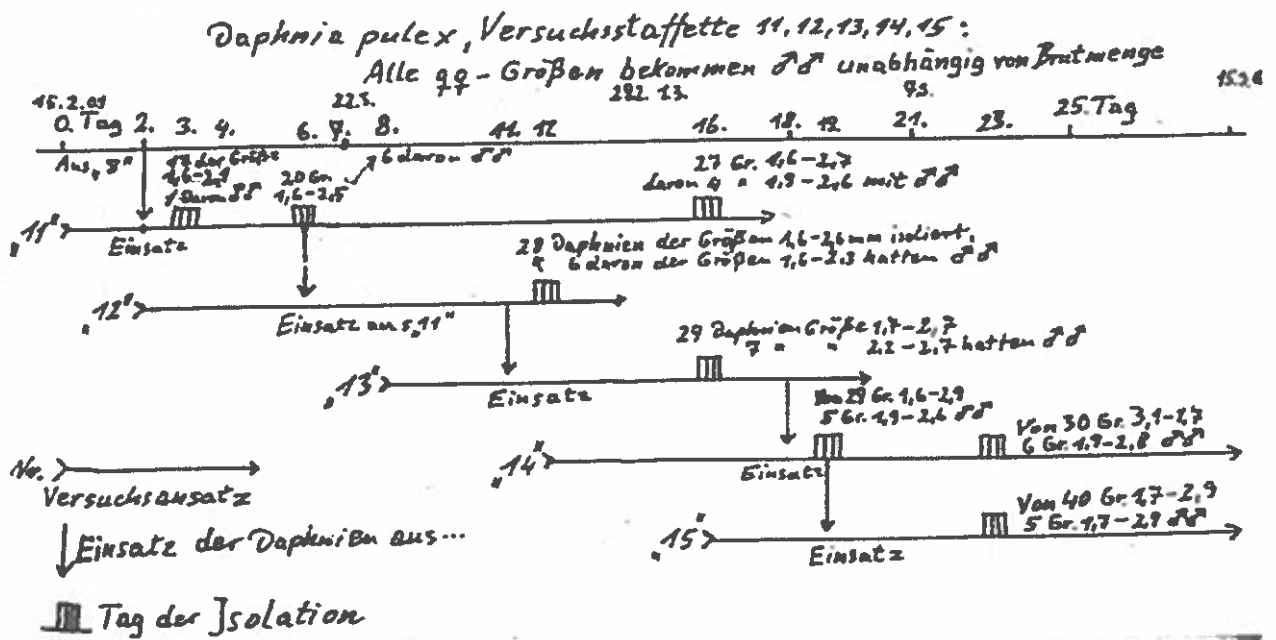 Daphnia pulex, Versuchsstaffette 11, 12, 13, 14, 15:
Alle ♀♀ - Größen bekommen ♂♂ unabhängig von Brutmenge
15.2.01 22s. 282. 13. 7s. 15.3.
0. Tag 2. 3. 4. 6. 7. 8. 11. 12 16. 18. 19 21. 23. 25. Tag
Aus „8" 17 der Größe
1,6-2,1
1 davon ♂♂
20 Gr.
1,6-2,5
6 davon ♂♂
27 Gr. 1,6-2,7
davon 4 " 1,9-2,6 mit ♂♂
„11"
Einsatz
28 Daphnien der Größen 1,6-2,6mm isoliert.
6 davon der Größen 1,6-2,3 hatten ♂♂
„12"
Einsatz aus „11"
29 Daphnien Größe 1,7-2,7
7 " " 2,2-2,7 hatten ♂♂
„13"
Einsatz
Von 29 Gr. 1,6-2,9
5 Gr. 1,9-2,6 ♂♂
Von 30 Gr. 3,1-1,7
6 Gr. 1,9-2,8 ♂♂
„14"
Einsatz
Von 40 Gr. 1,7-2,9
5 Gr. 1,7-2,9 ♂♂
„15"
Einsatz
Nr.
Versuchsansatz
Einsatz der Daphnien aus...
Tag der Isolation